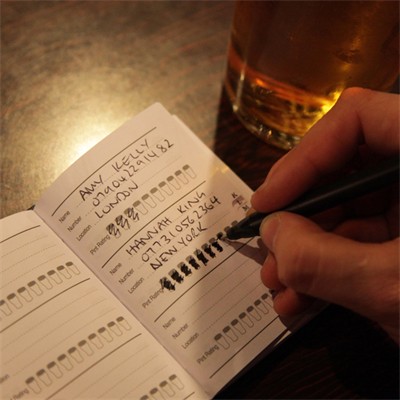 Name AMY KELLY
Number 079042291482
Location LONDON
Pint Rating
Name HANNAH KING
Number 07731056 2364
Location NEW YORK
Pint Rating
Name
Number
Location
Pint Rating
Pint Rating
Pint Rating